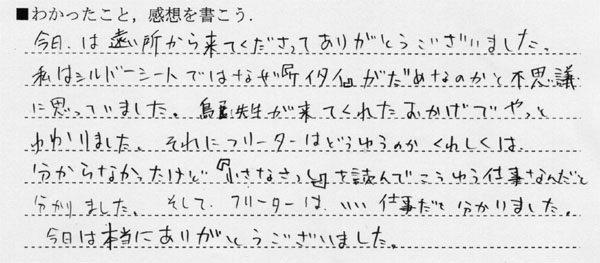 ■わかったこと，感想を書こう．
今日は遠い所から来てくださってありがとうございました。
私はシルバーシートではなぜ『ケイタイ』がだめなのかと不思議
に思っていました。 先生が来てくれたおかげでやっと
わかりました。それにフリーターはどうゆうのかくわしくは
分からなかったけど『小さなさっし』を読んでこうゆう仕事なんだと
分かりました。そして、フリーターは、いい仕事だと分かりました。
今日は本当にありがとうございました。